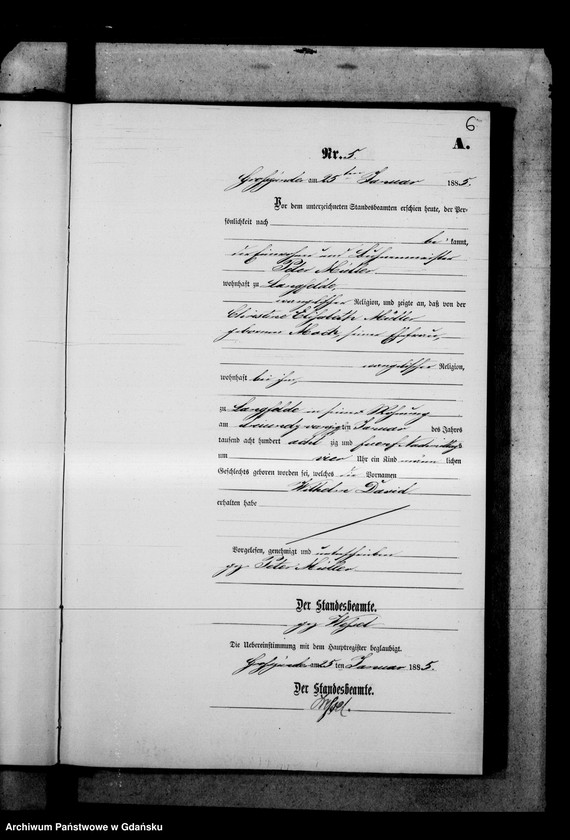 6
A.
Nr. 5.
am 25ten Januar 1885.
Vor dem unterzeichneten Standesbeamten erschien heute, der Per-
sönlichkeit nach
be kannt,
der und
Peter Müller
wohnhaft zu Langfelde,
evangelischer Religion, und zeigte an, daß von der
Christine Elisabeth Müller
geborenen seiner Ehefrau,
evangelischer Religion,
wohnhaft bei ihm,
zu Langfelde in seiner Wohnung
am ten Januar des Jahres
tausend acht hundert acht zig und fuenf Nachmittags
um vier Uhr ein Kind männ lichen
Geschlechts geboren worden sei, welches die Vornamen
Wilhelm David
erhalten habe
Vorgelesen, genehmigt und unterschrieben
gez. Peter Müller
Der Standesbeamte.
gez. Wessel
Die Uebereinstimmung mit dem Hauptregister beglaubigt.
am 25 ten Januar 1885.
Der Standesbeamte.
Wessel.
Archiwum Państwowe w Gdańsku